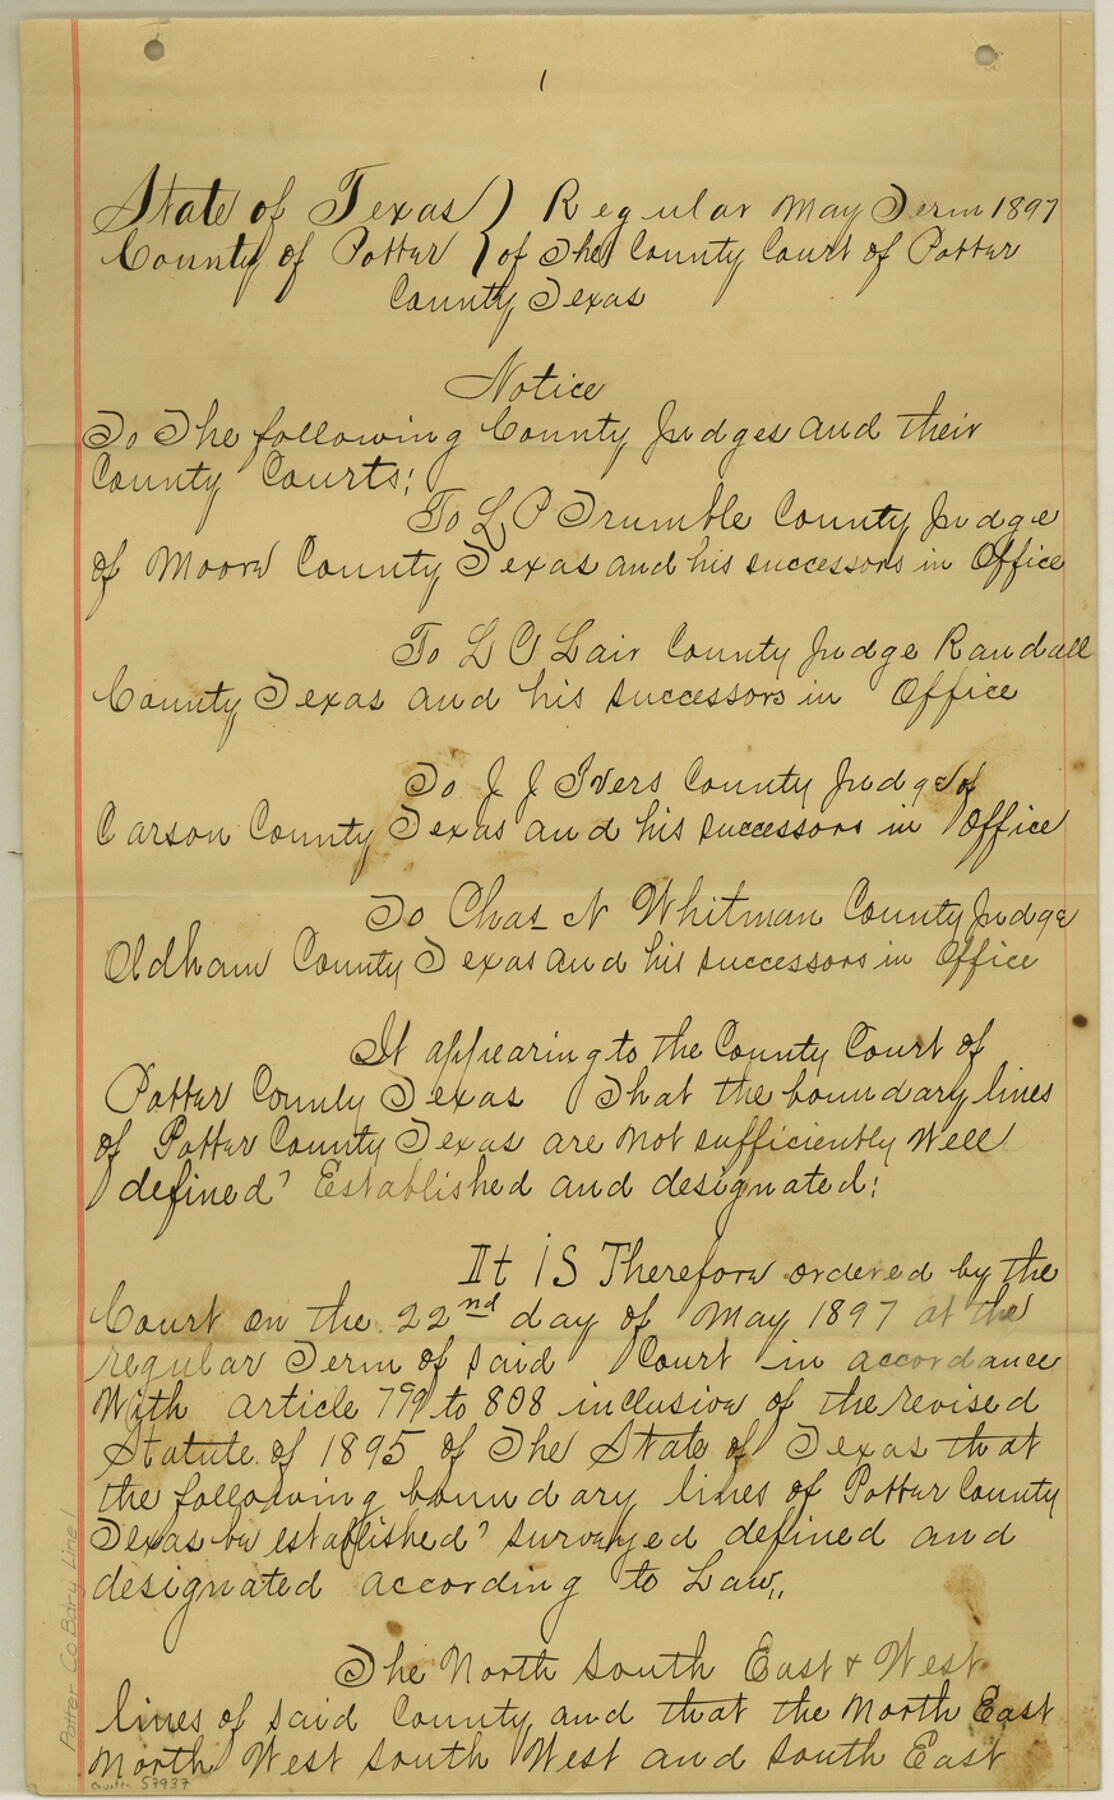 1
State of Texas } Regular May Term 1897
County of Potter } of The County Court of Potter
County Texas
Notice
To The following County Judges and their
County Courts:
To L P Trumble County Judge
of Moore County Texas and his successors in Office
To L C Lair County Judge Randall
County Texas and his successors in Office
To J J Ivers County Judge of
Carson County Texas and his successors in Office
To Chas N Whitman County Judge
Oldham County Texas and his successors in Office
It appearing to the County Court of
Potter County Texas That the boundary lines
of Potter County Texas are not sufficiently well
defined, Established and designated:
It is Therefore ordered by the
Court on the 22nd day of May 1897 at the
regular Term of said Court in accordance
With article 799 to 808 inclusive of the revised
Statute of 1895 of The State of Texas that
the following boundary lines of Potter County
Texas be established, surveyed defined and
designated according to Law,,
The North South East & West
lines of said County and that the North East
North West South West and South East
Potter Co Bdry Line 1
Counter 57937